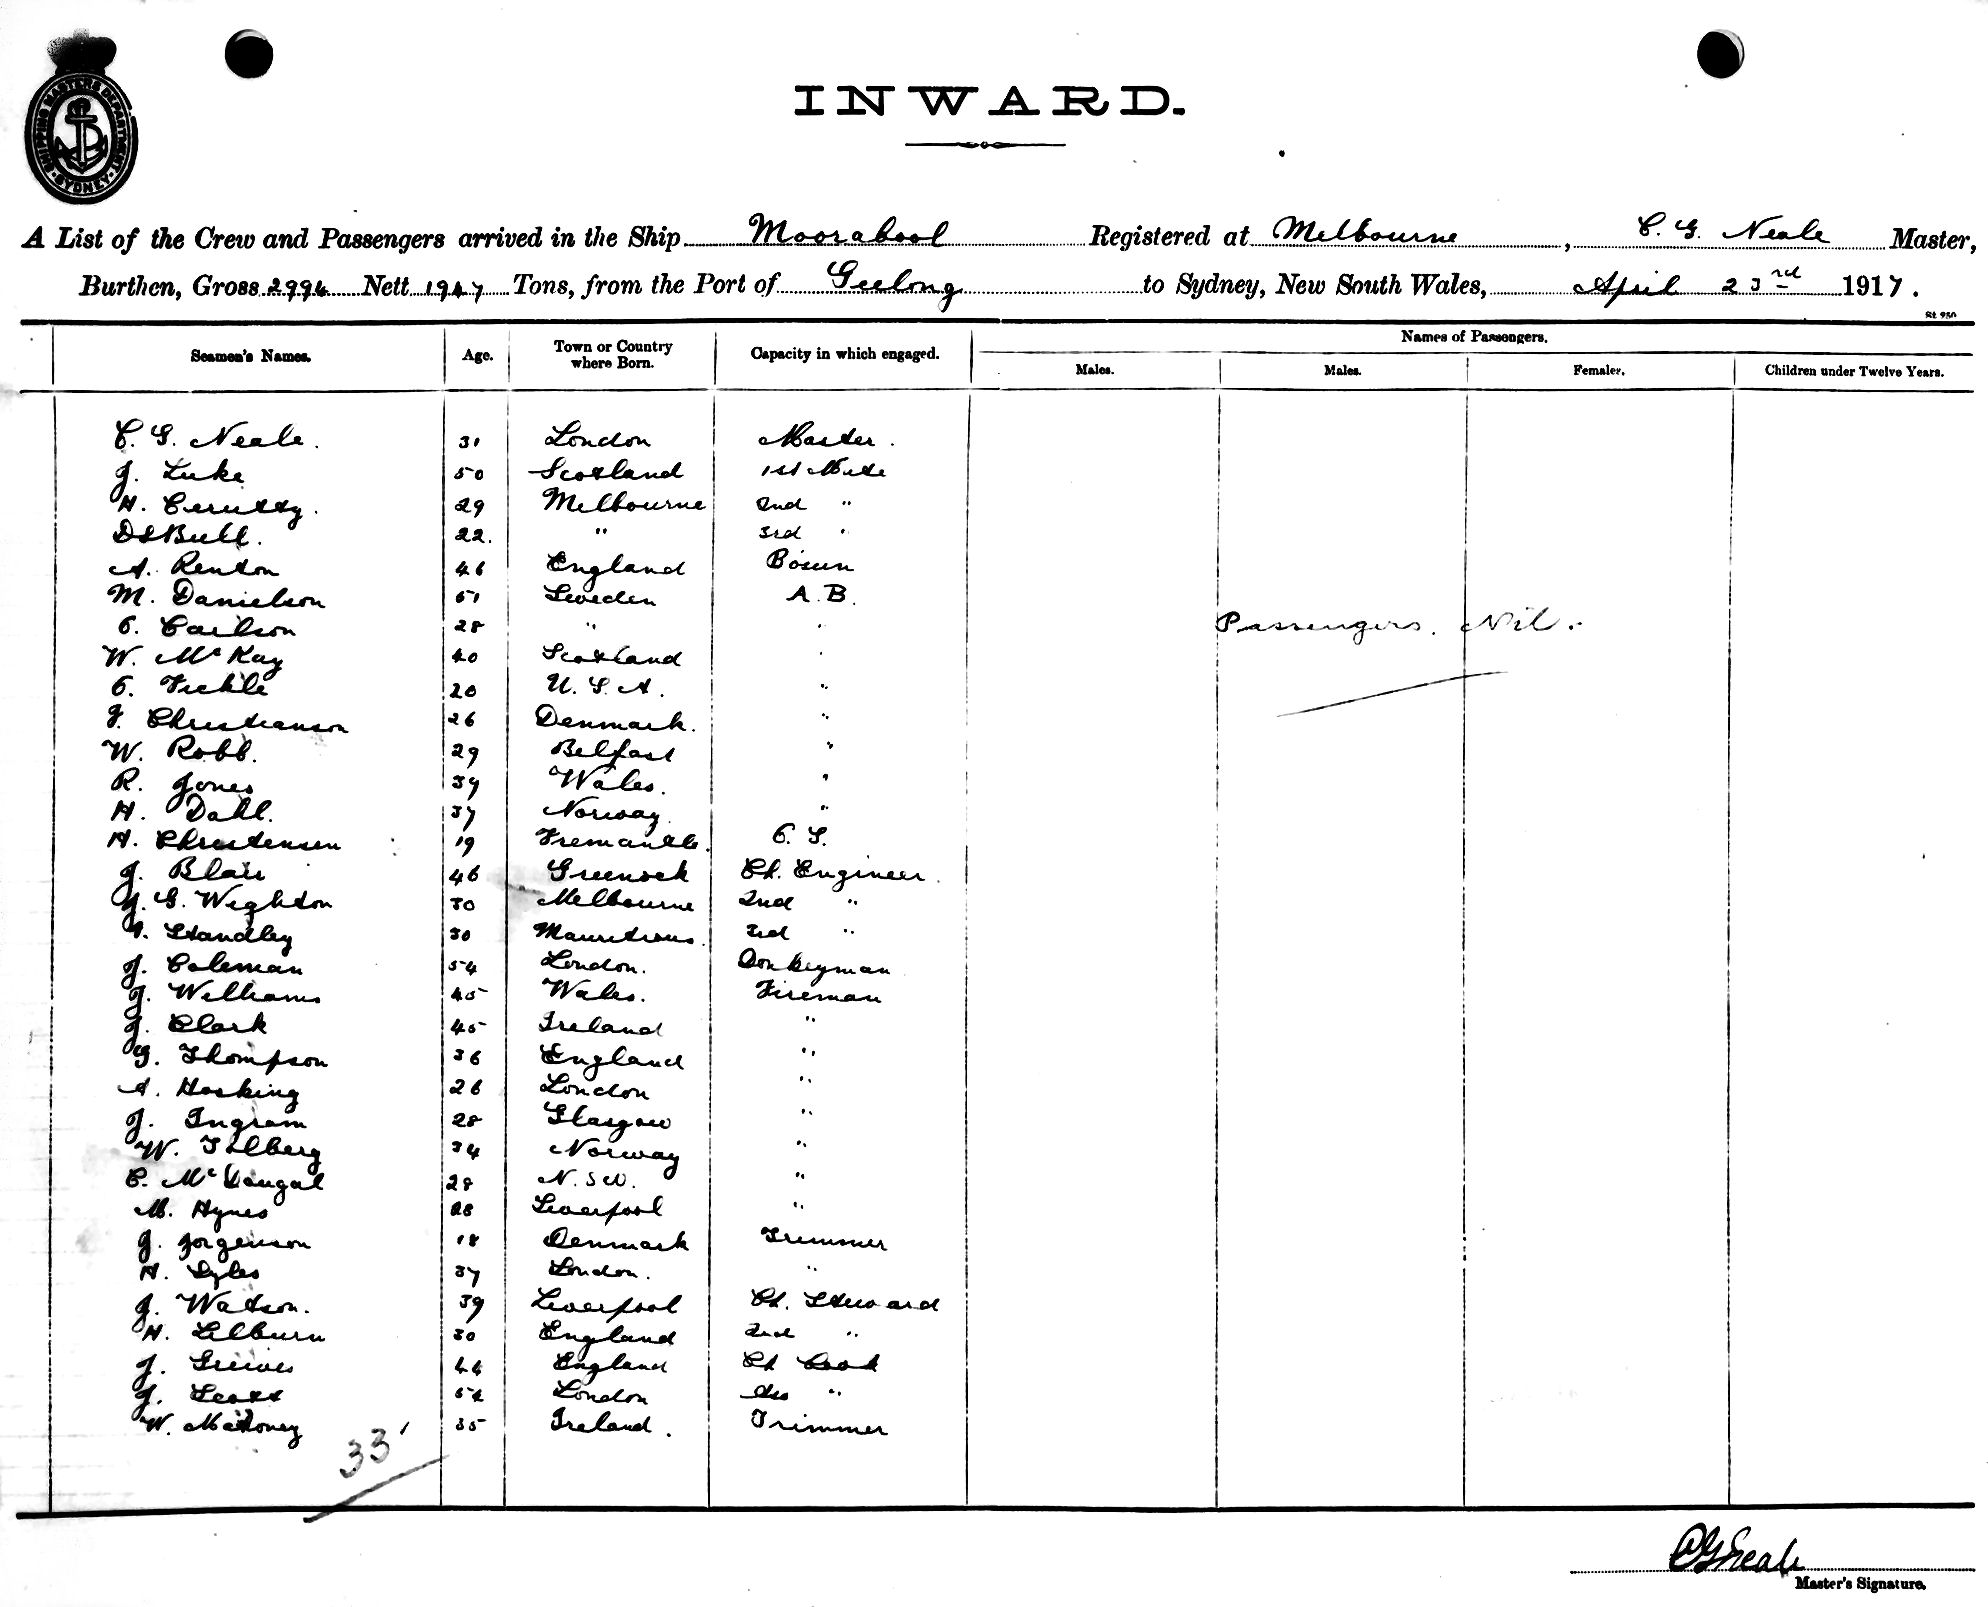 SHIPPING MASTERS DEPARTMENT SYDNEY
INWARD.
A List of the Crew and Passengers arrived in the Ship Moorabool Registered at Melbourne, C. G. Neale Master,
Burthen, Gross 2994 Nett 1947 Tons, from the Port of Geelong to Sydney, New South Wales, April 23rd 1917.
St 950
Seamen's Names. Age. Town or Country where Born. Capacity in which engaged. Names of Passengers.
Males. Males. Females. Children under Twelve Years.
C. G. Neale. 31 London Master.
J. Luke 50 Scotland 1st Mate
H. Cerutty. 29 Melbourne 2nd "
D S Bull. 22. " 3rd "
A. Renton 46 England Bosun
M. Danielson 51 Sweden A.B.
O. Carlson 28 " "
Passengers. Nil.
W. McKay 40 Scotland "
O. Fickle 20 U.S.A. "
J. Christianson 26 Denmark. "
W. Robb. 29 Belfast "
R. Jones 39 Wales. "
H. Dahl. 37 Norway. "
H. Christensen 19 Fremantle. O.S.
J. Blair 46 Greenock Ch. Engineer.
G. Wighton 30 Melbourne 2nd "
Standley 30 Mauritious. 3rd "
J. Coleman 54 London. Donkeyman
J. Williams 45 Wales. Fireman
J. Clark 45 Ireland "
G. Thompson 36 England "
A. Hosking 26 London "
J. Ingram 28 Glasgow "
W. Tolberg 34 Norway "
C. McDougal 28 N.S.W. "
M. Hynes 28 Liverpool "
J. Jorgenson 18 Denmark Trimmer
H. Syles 37 London. "
J. Watson. 39 Liverpool Ch. Steward
H. Lilburn 30 England 2nd "
J. Greives 44 England Ch Cook
J. Scott 54 London Ass "
W. Mahoney 35 Ireland. Trimmer
33
C G Neale
Master's Signature.